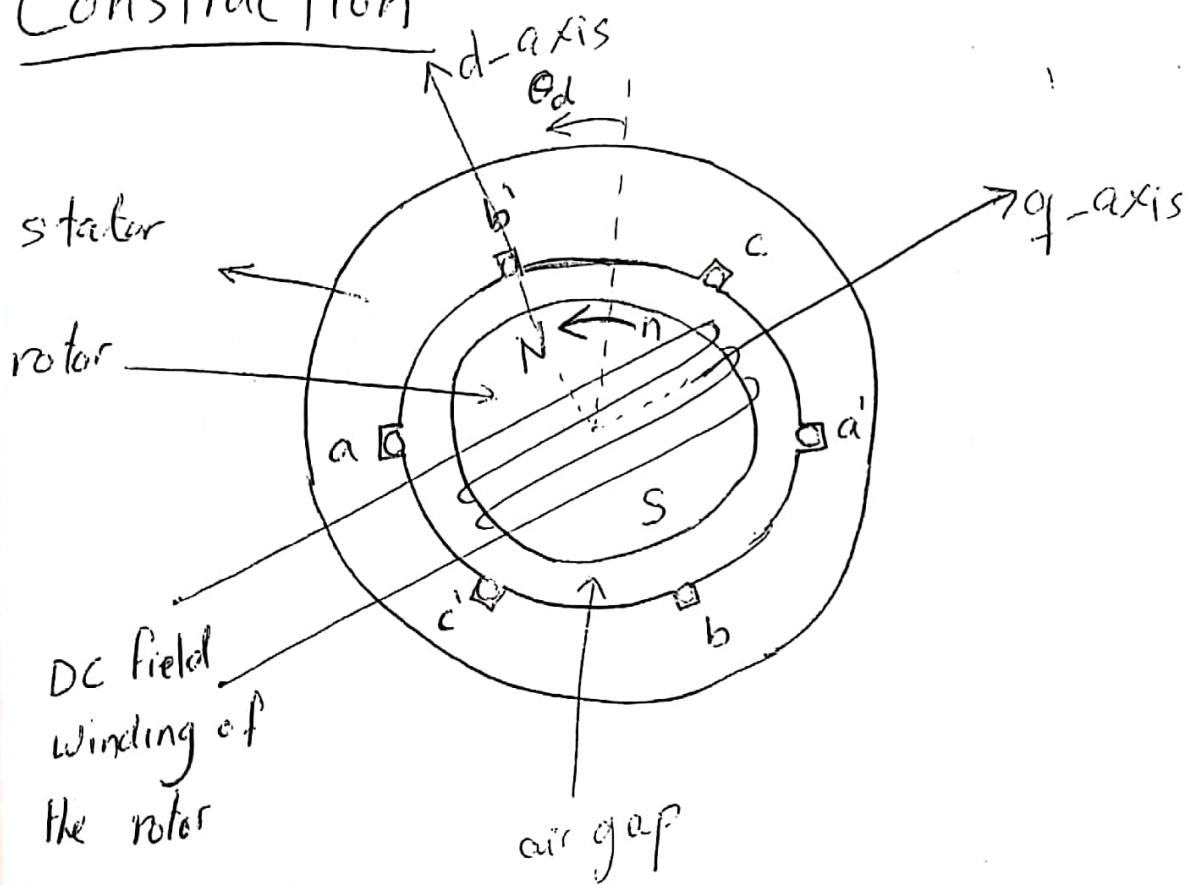 Construction
d-axis
θd
b'
q-axis
stator
c
N
n
rotor
a
a'
S
c'
b
DC field
winding of
the rotor
air gap